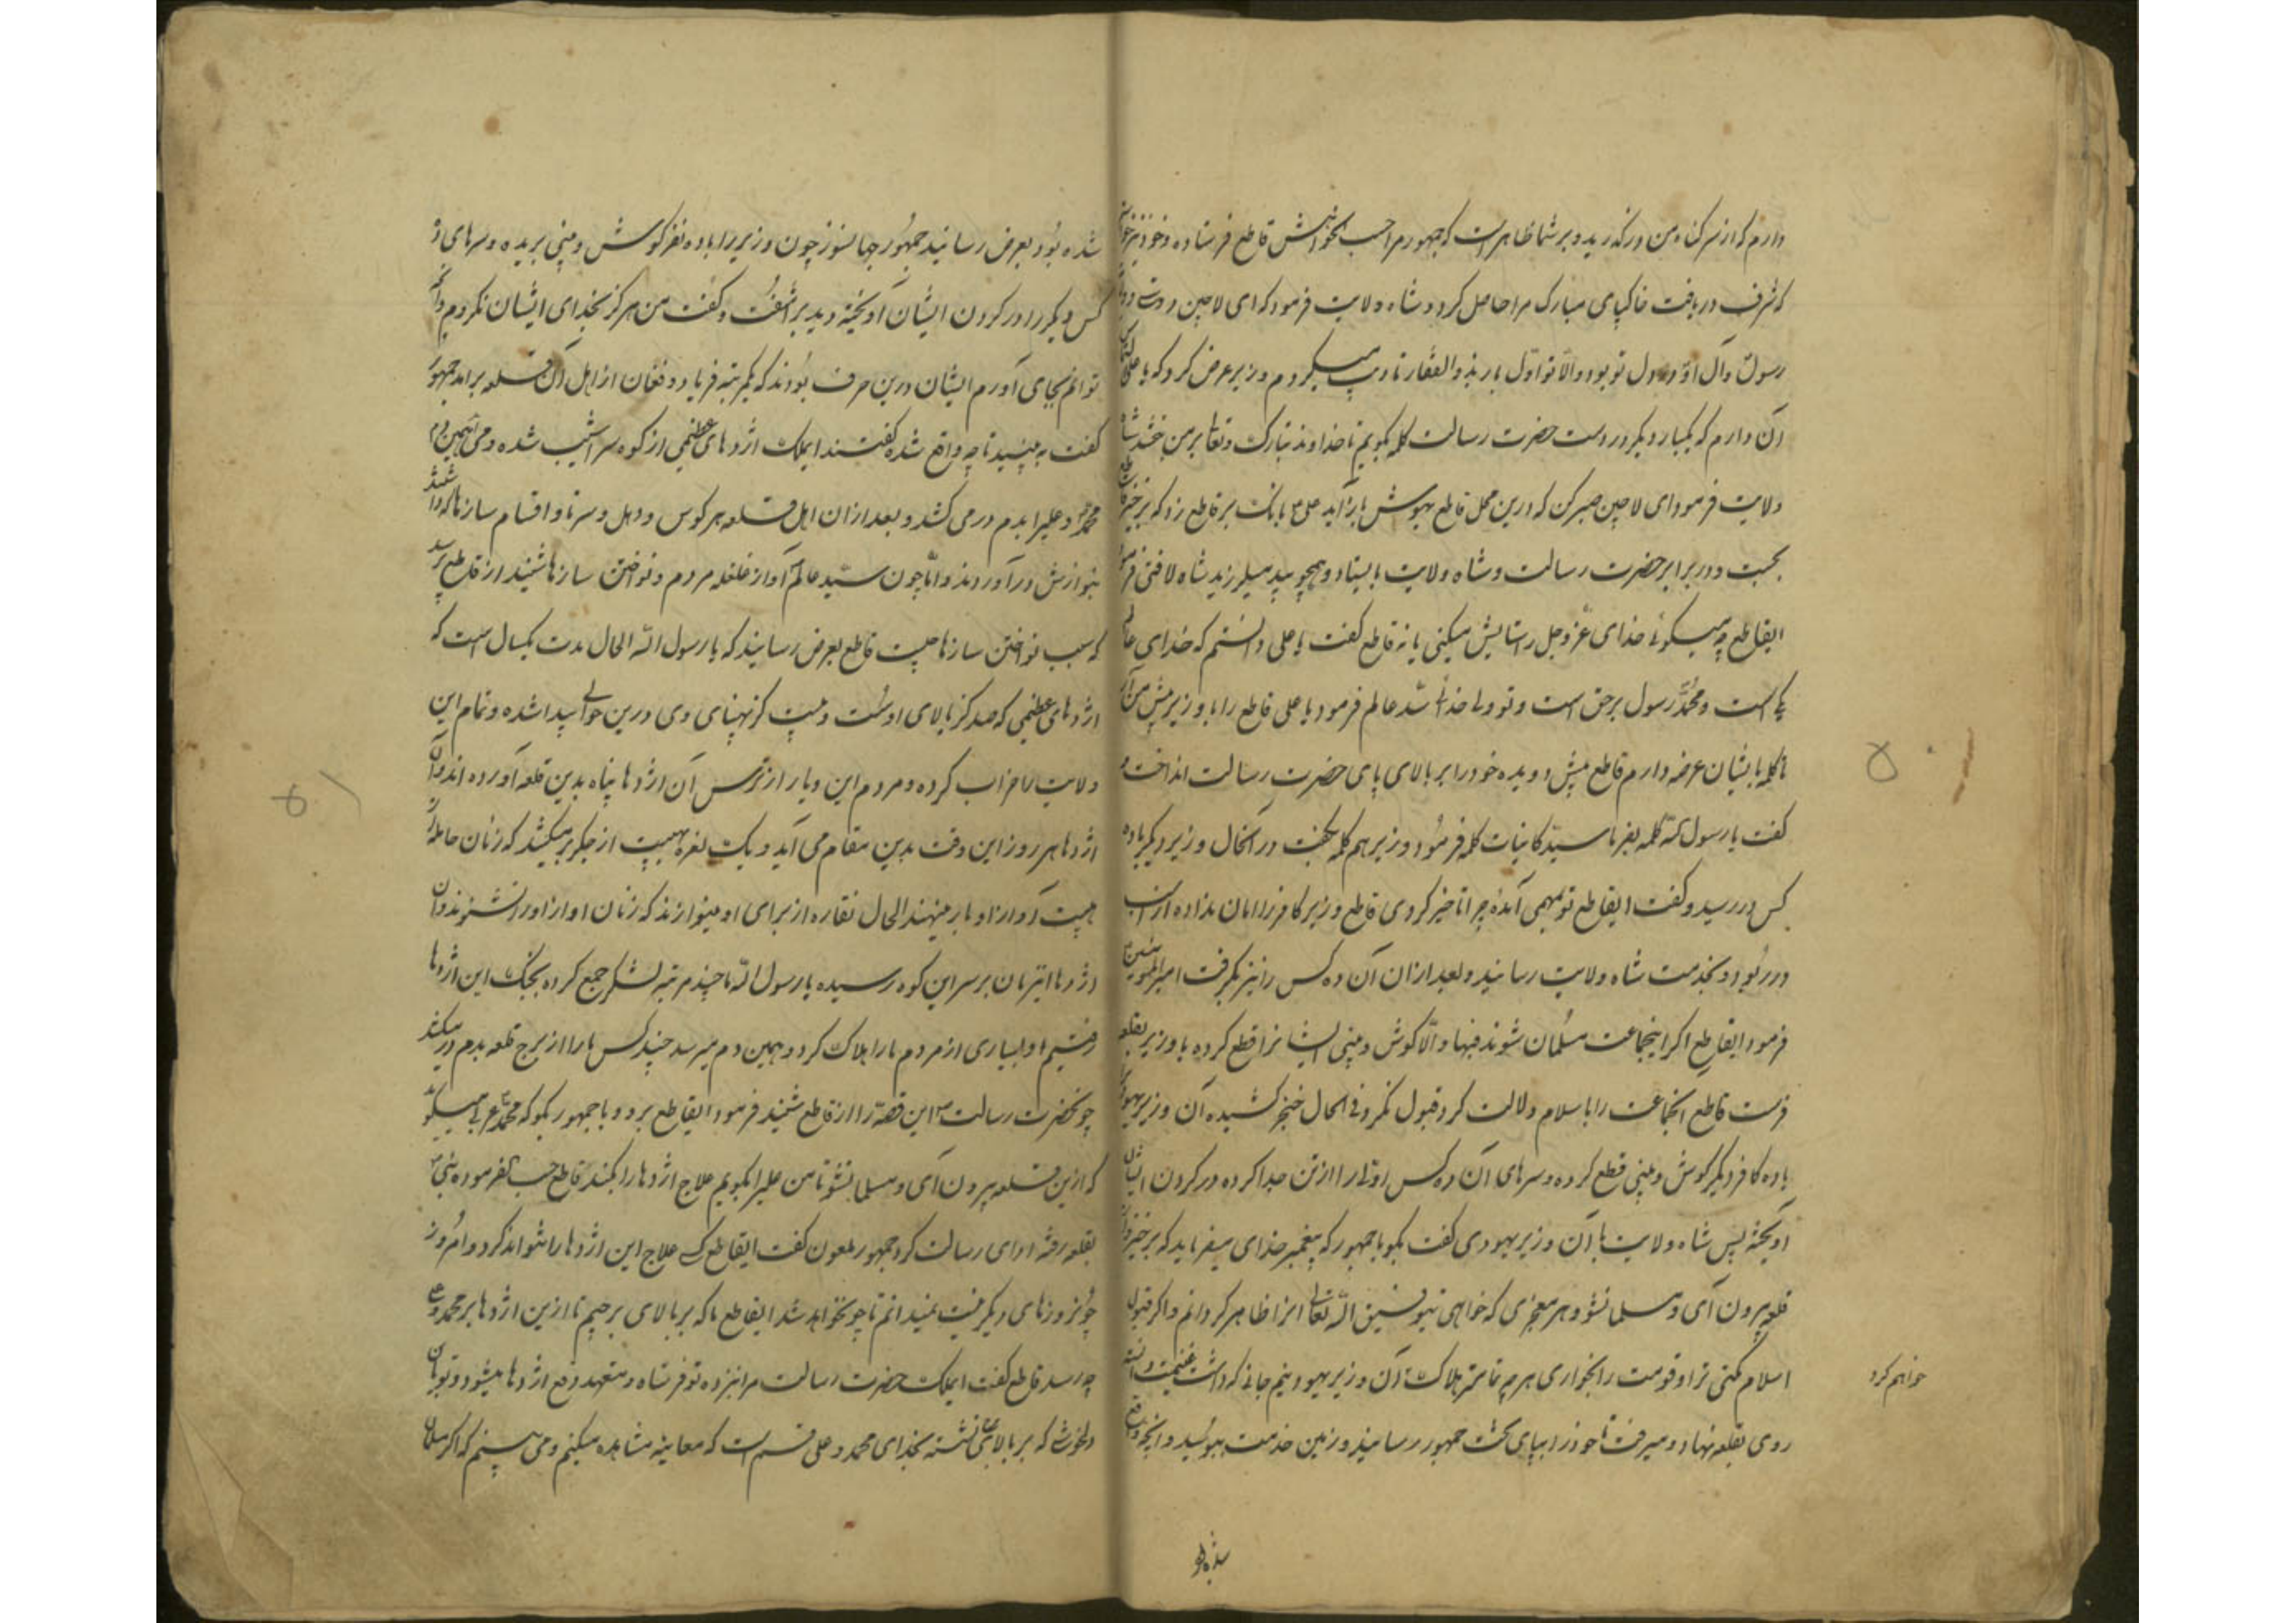 دارم که از سر کناه من درکذرید و بر شما ظاهر است که جمهور مرا حسب الخواهش قاطع فرستاده و خود نیز
که شرف دریافت خاکپای مبارک مرا حاصل کردد شاه ولایت فرمود که ای لاچین دوستی
رسول و آل او در دل تو بود و الا تو اول بار بذوالفقار تادیب میکردم وزیر عرض کرد که یا علی
آن دارم که یکبار دیکر در دست حضرت رسالت کلمه بکویم تا خداوند تبارک و تعالی بر من بخشد شاه
ولایت فرمود ای لاچین صبر کن که درین محل قاطع بهوش باز آید علی بانک بر قاطع زد که برخیز
بجست و در برابر حضرت رسالت و شاه ولایت بایستاد و همچو بید میلرزید شاه لافتی
ایقاطع چه میکوئی خدای عز و جل را ستایش میکنی یا نه قاطع کفت یا علی دانستم که خدای
یکی است و محمد رسول بر حق است و تو ولی خدائی سید عالم فرمود یا علی قاطع را با وزیر پیش من
تا کلمه بایشان عرضه دارم قاطع پیش دویده خود را بر بالای پای حضرت رسالت انداخت و
کفت یا رسول الله کلمه بفرما سید کاینات کلمه فرمود وزیر هم کلمه بکفت در آنحال وزیر دیکر با ده
کس در رسید و کفت ایقاطع تو بمهمی آمدهٔ چرا تاخیر کردی قاطع وزیر کافر را امان نداده از اسب
در ربود و بخدمت شاه ولایت رسانید و بعد از ان آن ده کس را نیز بکرفت امیرالمومنین
فرمود ایقاطع اکر اینجماعت مسلمان شوند فبها و الا کوش و بینی ایشانرا قطع کرده با وزیر بقلعه
فرست قاطع آنجماعت را باسلام دلالت کرد قبول نکردند فی الحال خنجر کشیده آن وزیر
با ده کافر دیکر کوش و بینی قطع کرده و سرهای آن ده کس اول را از تن جدا کرده در کردن ایشان
آویخته پس شاه ولایت با آن وزیر یهودی کفت بکو با جمهور که پیغمبر خدای میفرماید که برخیز و از
قلعه بیرون آی و مسلمانشو و هر معجزی که خواهی بتوفیق الله تعالی آنرا ظاهر کردانم و اکر قبول
اسلام نکنی ترا و قومت را بخواری هر چه تمامتر هلاک آن وزیر یهود نیم جانی که داشت غنیمت دانسته
خواهم کرد
روی بقلعه نهاد و میرفت تا خود را بپای تخت جمهور رسانید و زمین خدمت ببوسید و آنچه واقع
شده بود
شده بود بعرض رسانید جمهور جهانسوز چون وزیر را با ده نفر کوش و بینی بریده و سرهای ده
کس دیکر را در کردن ایشان آویخته دید برآشفت و کفت من هرکز بخدای ایشان نکروم و آنچه
توانم بجای آورم ایشان درین حرف بودند که یکمرتبه فریاد و فغان از اهل آن قلعه برآمد جمهور
کفت به بینید تا چه واقع شده کفتند ایملک اژدهای عظیمی از کوه سراشیب شده و می آید همین دم
محمد و علی را بدم در می کشد و بعد از ان اهل قلعه هر کوس و دهل و سرنا و اقسام سازها که داشتند
بنوازش در آوردند و اما چون سید عالم آواز غلغله مردم و نواختن سازها شنید از قاطع پرسید
که سبب نواختن سازها چیست قاطع بعرض رسانید که یا رسول الله الحال مدت یکسال است که
اژدهای عظیمی که صد کز بالای اوست و بیست کز پهنای وی درین حوالی پیدا شده و تمام این
ولایت را خراب کرده و مردم این دیار از ترس آن اژدها پناه بدین قلعه آورده اند و آن
اژدها هر روز این وقت بدین مقام می آید و یک نعره مهیب از جکر برمیکشد که زنان حامله از
هیبت آواز او بار مینهند الحال نقاره از برای او مینوازند که زنان آواز او را نشنوند و آن
اژدها این زمان بر سر این کوه رسیده یا رسول الله ما چند مرتبه لشکر جمع کرده بجنک این اژدها
رفتیم او بسیاری از مردم ما را هلاک کرد و همین دم میرسد چند کس ما را از برج قلعه بدم در میکشد
چو حضرت رسالت این قصه را از قاطع شنید فرمود ایقاطع برو و با جمهور بکو که محمد عربی میکوید
که ازین قلعه بیرون آی و مسلمانشو تا من علی را بکویم علاج اژدها را بکند قاطع حسب الفرموده نبی
بقلعه رفته ادای رسالت کرد جمهور ملعون کفت ایقاطع کی علاج این اژدها را تواند کرد و امروز
چو روزهای دیکر نیست نمیدانم تا چو خواهد شد ایقاطع ما که بر بالای برجیم تا ازین اژدها بر محمد و علی
چه رسد قاطع کفت ایملک حضرت رسالت مرا نزد تو فرستاده و متعهد دفع اژدها میشود و تو
دلخوش که بر بالای نشسته بخدای محمد و علی قسم است که معاینه مشاهده میکنم و می بینم که اکر مسلمان